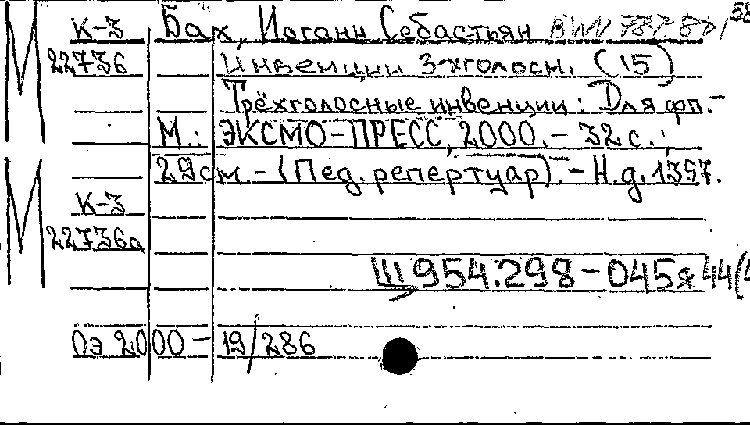 М К-3 Бах, Иоганн Себастьян BWV 787
22736 Инвенции 3-хголосн. (15)
Трёхголосные инвенции: Для фп.-
М.: ЭКСМО-ПРЕСС, 2000.- 32с.;
29см.-(Пед. репертуар).- Н.д.1357.
М К-3
22736а
Щ954.298-045я44(4
Оэ 2000-19/286